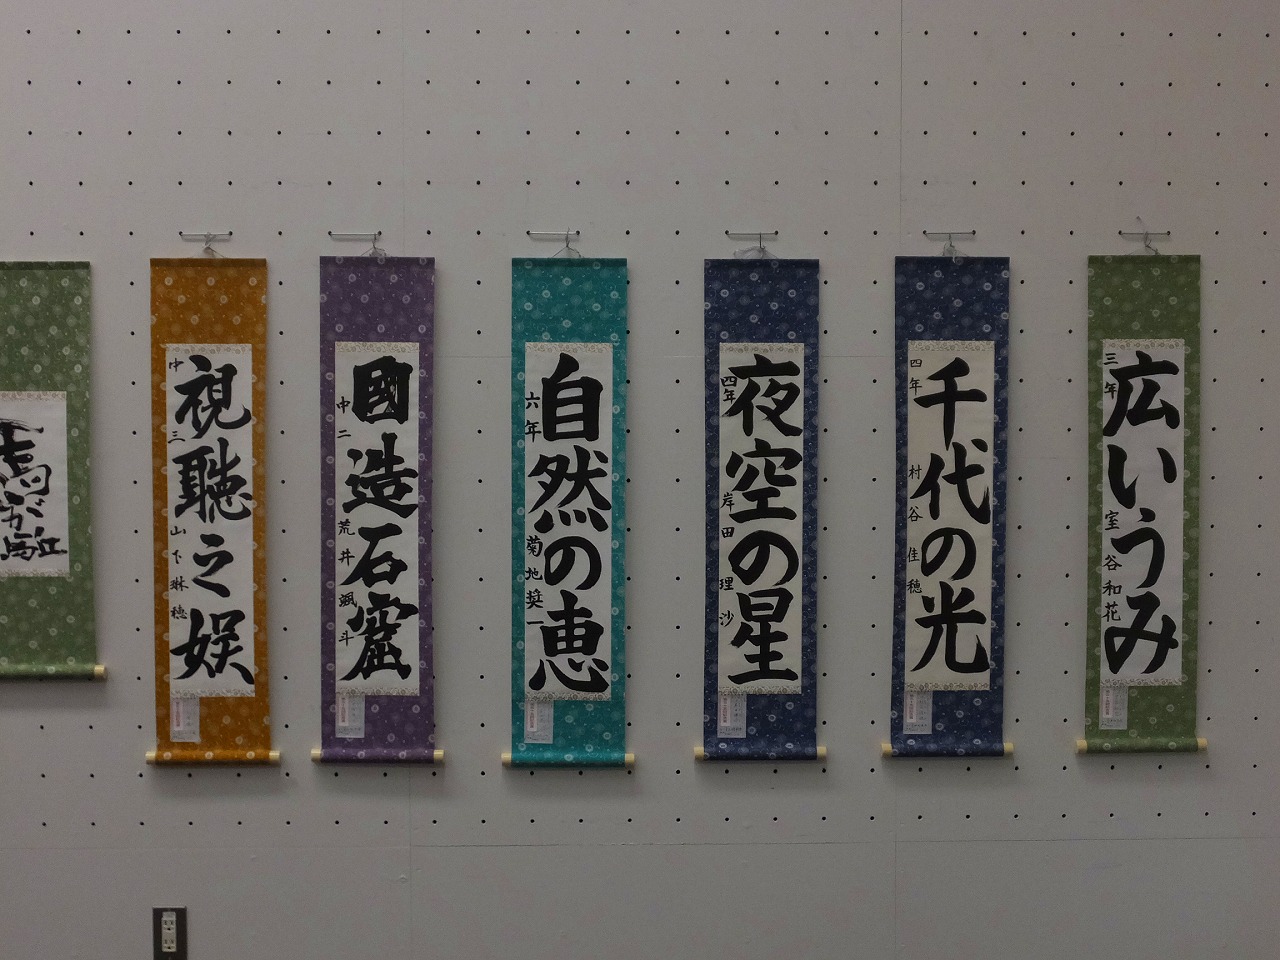 広いうみ
三年 室谷和花
千代の光
四年 村谷佳穂
夜空の星
四年 岸田理沙
自然の恵
六年 菊地奨一
國造石窟
中二 荒井颯斗
視聴之娯
中三 山下琳穂